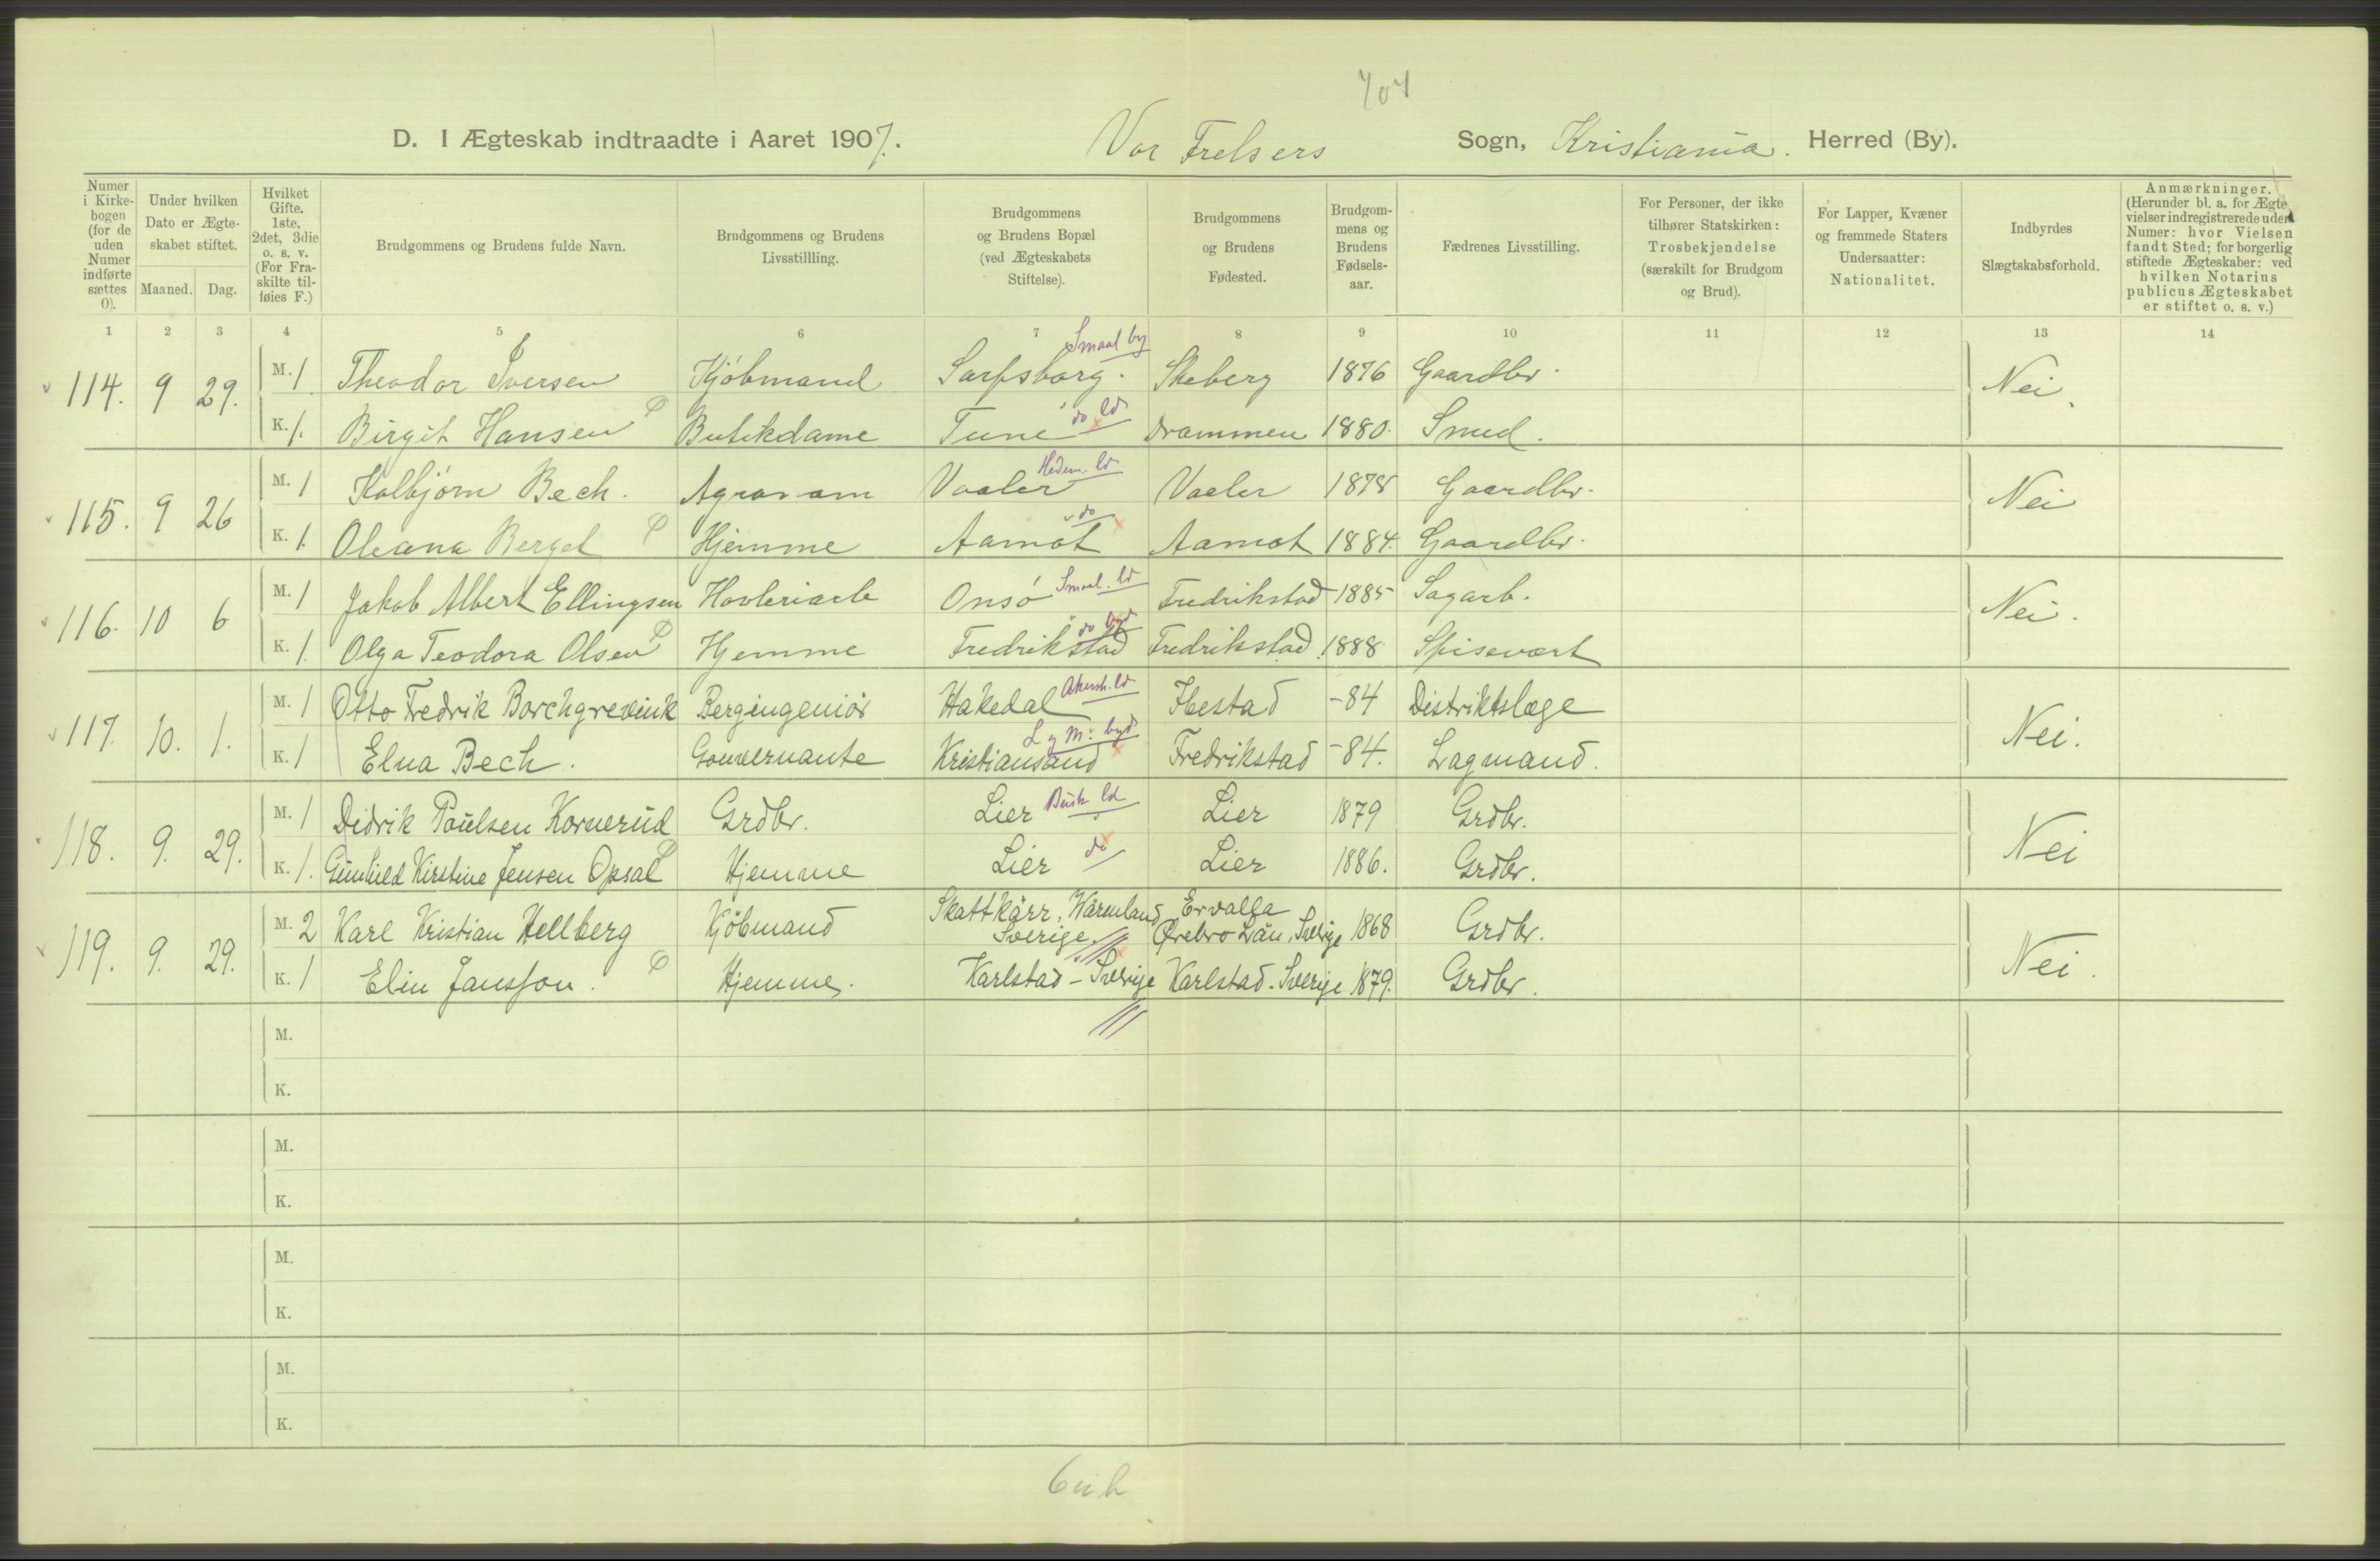 704
D. I Ægteskab indtraadte i Aaret 1907. Vor Frelsers Sogn, Kristiania. Herred (By).
Numer i Kirke-bogen (for de uden Numer indførte sættes 0).
Under hvilken Dato er Ægte-skabet stiftet.
Maaned. Dag.
Hvilket Gifte. 1ste. 2det, 3die o. s. v. (For Fra-skilte til-føies F.)
Brudgommens og Brudens fulde Navn.
Brudgommens og Brudens Livsstillling.
Brudgommens og Brudens Bopæl (ved Ægteskabets Stiftelse).
Brudgommens og Brudens Fødested.
Brudgom-mens og Brudens Fødsels-aar.
Fædrenes Livsstilling.
For Personer, der ikke tilhører Statskirken: Trosbekjendelse (særskilt for Brudgom og Brud).
For Lapper, Kvæner og fremmede Staters Undersaatter: Nationalitet.
Indbyrdes Slægtskabsforhold.
Anmærkninger. (Herunder bl. a. for Ægte vielser indregistrerede uden Numer: hvor Vielsen fandt Sted; for borgerlig stiftede Ægteskaber: ved hvilken Notarius publicus Ægteskabet er stiftet o. s. v.)
1 2 3 4 5 6 7 8 9 10 11 12 13 14
Smaal by
114. 9 29. M. 1 Theodor Iversen Kjöbmand Sarpsborg. Skeberg 1876 Gaardbr. Nei.
do ld
K. 1. Birgit Hansen Butikdame Tune Drammen 1880. Smed.
Hedem. ld
115. 9 26 M. 1 Kolbjörn Bech. Agronom Vaaler Vaaler 1878 Gaardbr. Nei
do
K. 1. Oleana Berget Hjemme Aamot Aamot 1884. Gaardbr.
Smaal. ld
116. 10 6 M. 1 Jakob Albert Ellingsen Hövleriarb Onsö Fredrikstad 1885 Sagarb. Nei.
do byd
K. 1. Olga Teodora Olsen Hjemme Fredrikstad Fredrikstad 1888 Spisevært
Akersh. ld
117. 10. 1. M. 1 Otto Fredrik Borchgrevink Bergingeniör Hakedal Ibestad -84 Distriktslæge Nei.
L g M. byd
K. 1 Elna Bech. Gouvernante Kristiansand Fredrikstad -84. Lagmand.
Busk ld
118. 9. 29. M. 1 Didrik Poulsen Kornerud Grdbr. Lier Lier 1879 Grdbr. Nei
do
K. 1. Gunhild Kirstine Jensen Opsal Hjemme Lier Lier 1886. Grdbr.
119. 9. 29. M. 2 Karl Kristian Hellberg Kjöbmand Skattkärr, Wärmland Sverige. Ervalla Örebro Län, Sverige 1868 Grdbr. Nei.
K. 1 Elin Jansson. Hjemme. Karlstad - Sverige Karlstad - Sverige 1879. Grdbr.
M.
K.
M.
K.
M.
K.
M.
K.